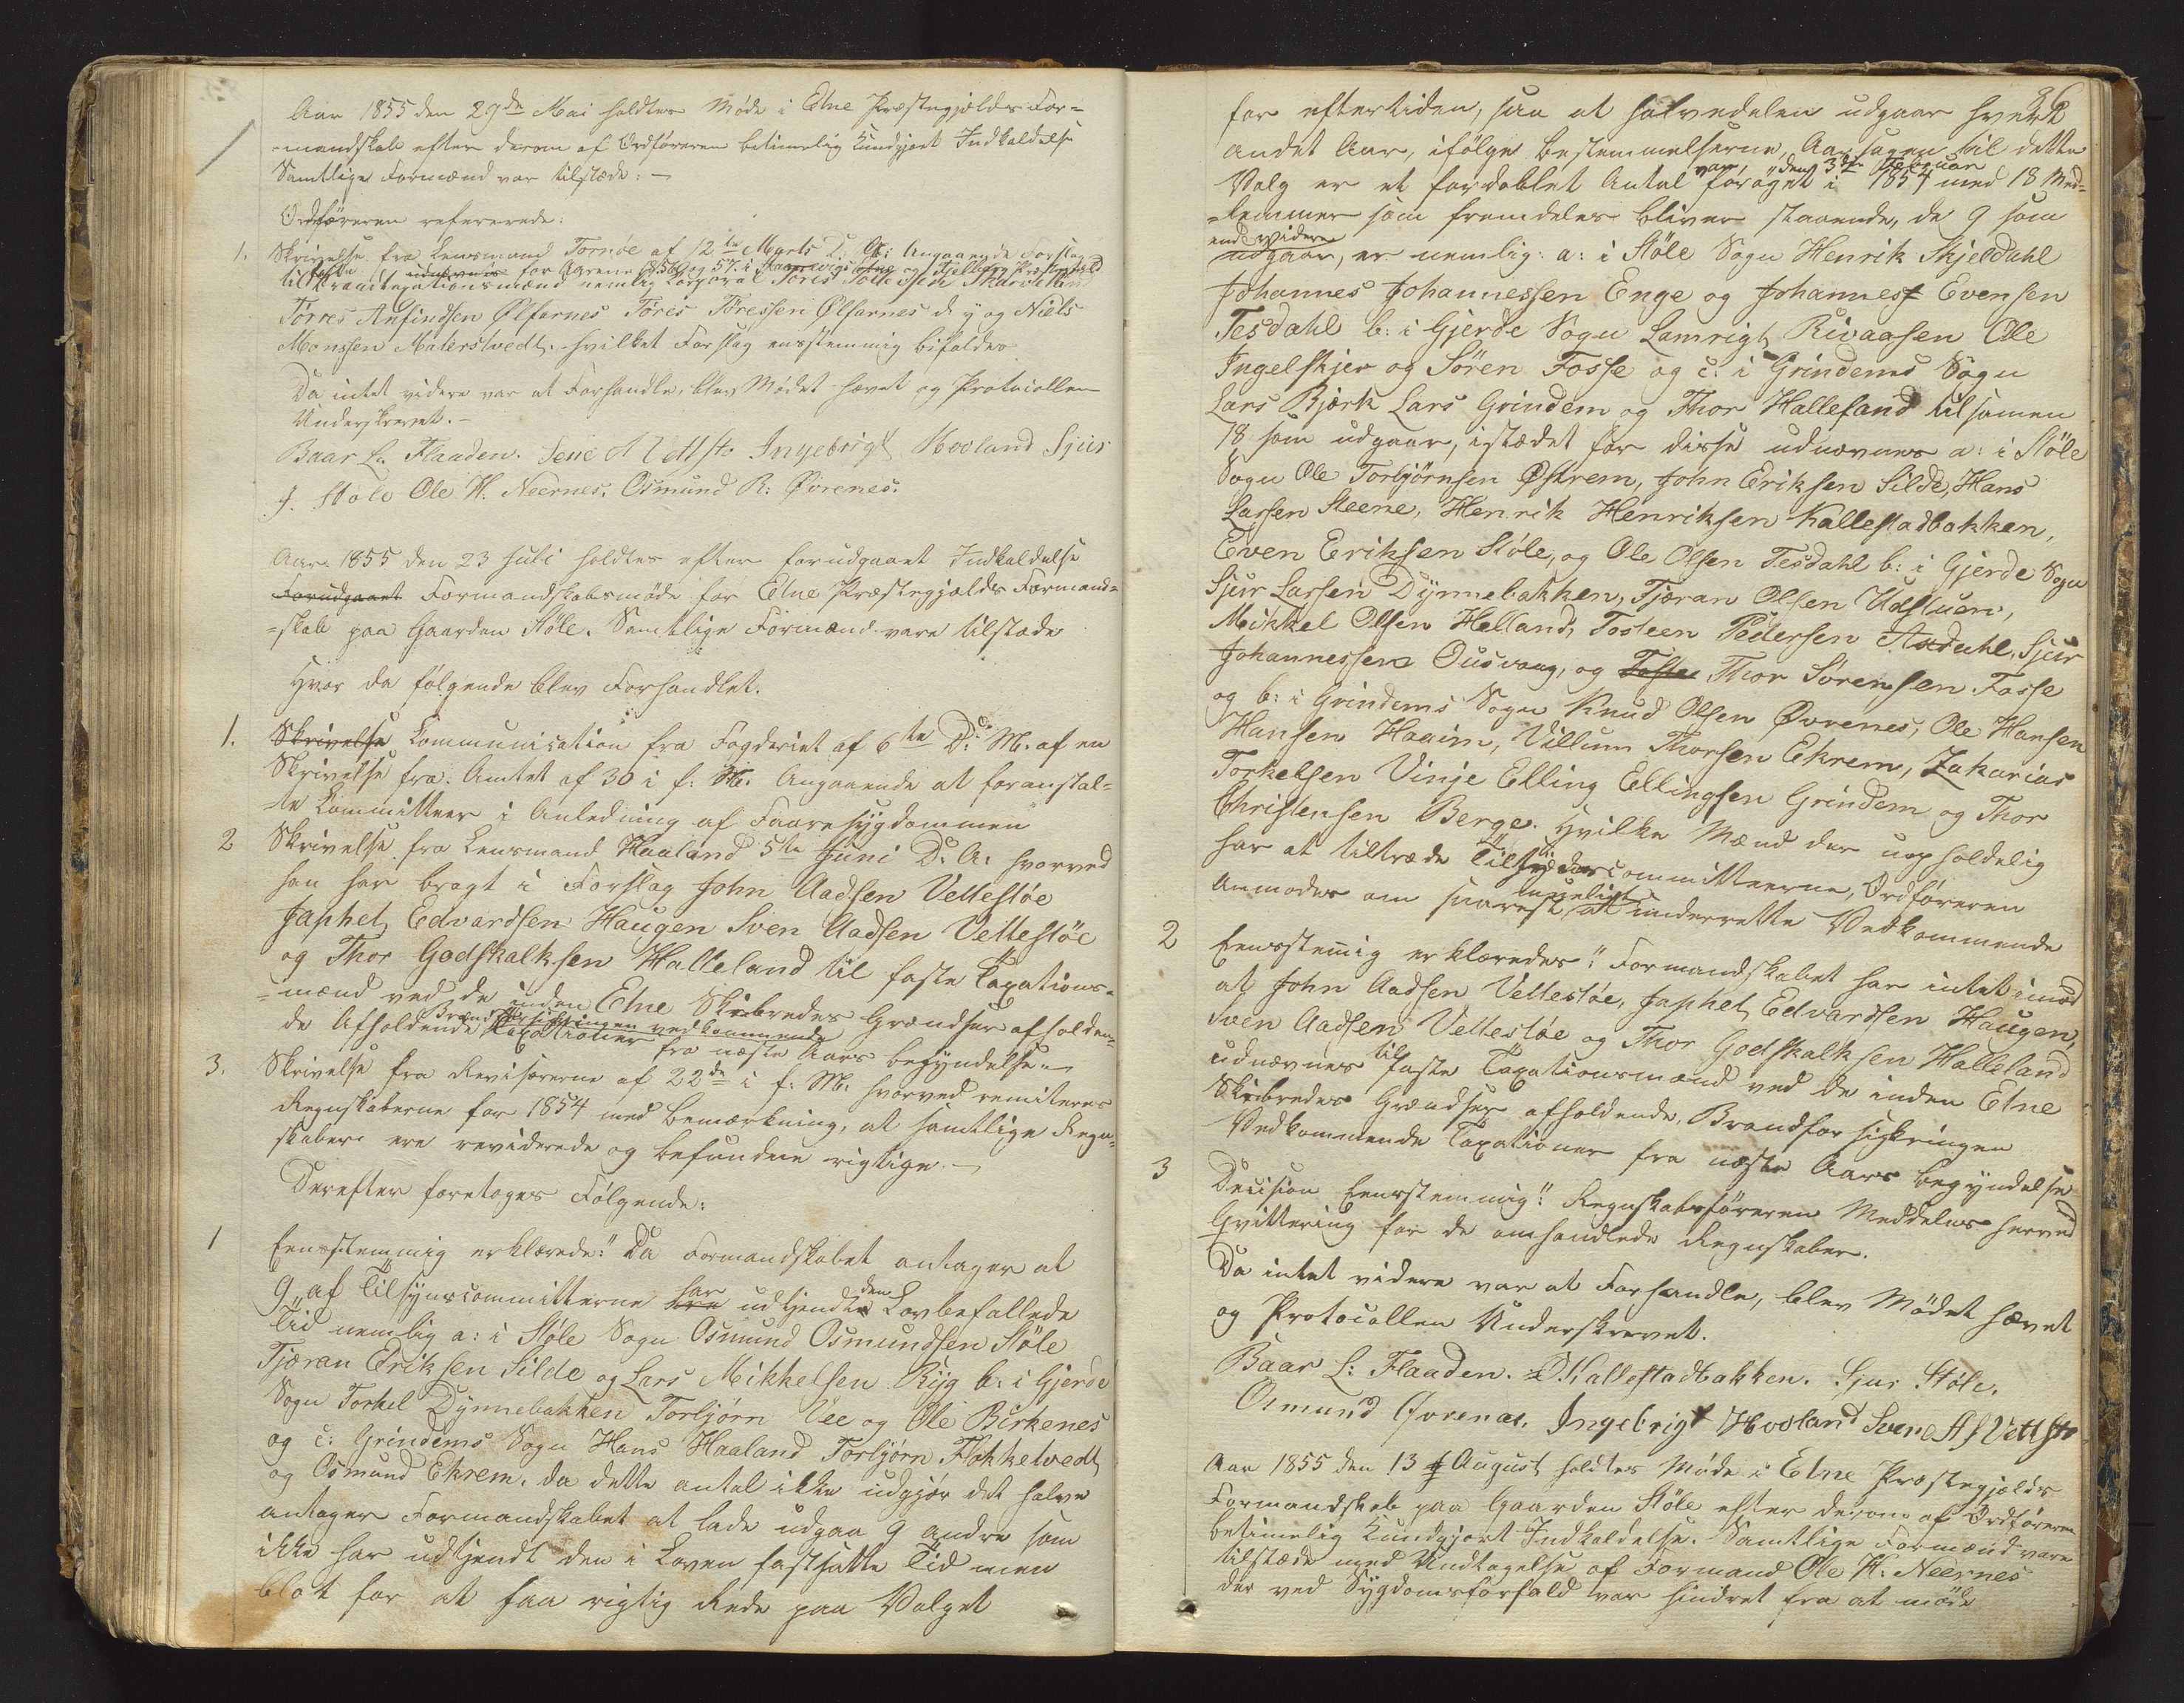 Aar 1855 den 29de Mai holdtes Møde i Etne Præstegjælds For-
-mandskab efter derom af Ordføreren betimelig kundgjort Indkaldelse
Samtlige Formænd var tilstæde: —
Ordføreren refererede:
1. Skrivelse fra Lensmand Tornøe af 12te Marts D. A: Angaaende Forslag
til for Aarene 1856 og 57. i og Fjelberg Præstegjæld
nemlig Corporal Tores
Torres Anfindsen Ølfarnes Tøres Tøressen Ølfarnes d. y og Niels
Monssen Materstvedt. hvilket Forslag eensstemmig bifaldes
Da intet videre var at Forhandle, blev Mødet hævet og Protocollen
Underskrevet. -
Baar L. Flaaden. A Vettsto Ingebrigt Hovland Sjur
J. Støle Ole H. Neernes. Osmund R: Øvrenes.
Aar. 1855 den 23 Juli holdtes efter forudgaaet Indkaldelse
Forudgaaet Formandskabsmøde for Etne Præstegjælds Formand-
-skab paa Gaarden Støle. Samtlige Formænd vare tilstæde
Hvor da følgende blev Forhandlet.
1. Skrivelse Communication fra Fogderiet af 6te D. M. af en
Skrivelse fra Amtet af 30 i f: M. Angaaende at foranstal-
-te Committeer i Anledning af Faaresygdommen
2 Skrivelse fra Lensmand Haaland 5te Juni D. A. hvorved
han har bragt i Forslag John Aadsen Vettestøe
Japhet Edvardsen Haugen Sven Aadsen Vettestöe
og Thor Godskalksen Halleland til faste Taxations-
-mænd ved de inden Etne Skibredes Grændser afholden-
de Afholdende Brandforsikringen vedkommende
Taxationer fra næste Aars begyndelse. —
3. Skrivelse fra Revisorerne af 22de i f: M. hvorved remiteres
Regnskaberne for 1854 med bemærkning, at samtlige Regn-
skaber ere reviderede og befundne rigtige. —
Derefter foretoges Følgende:
1 Eensstemmig erklærede: "Da Formandskabet antager at
9 af Tilsynscommitterne ere har udtjendt den Lovbefallede
Tid nemlig a: i Støle Sogn Osmund Osmundsen Støle
Tjæran Eriksen Silde og Lars Mikkelsen Ryg b: i Gjerde
Sogn Torkel Dynnebakken Torbjørn Vee og Ole Birkenes
og c: Grindems Sogn Hans Haaland Torbjørn Flokketvedt
og Osmund Ekrem. da dette antal ikke udgjør det halve
antager Formandskabet at lade udgaa 9 andre som
ikke har udtjendt den i Loven fastsatte Tid men
blot for at faa rigtig Rede paa Valget
86
for eftertiden, saa at halvedelen udgaar hvert
andet Aar, ifølge bestemmelserne, Aarsagen til dette
Valg er et fordoblet Antal var forøget den 3de Februar i 1854 med 18 Med-
-lemmer som fremdeles bliver staaende, de 9 som
end videre
udgaar, er nemlig: a: i Støle Sogn Henrik Skjeldahl
Johannes Johannessen Enge og Johannes Evensen
Tesdahl b: i Gjerde Sogn Lamrigt Rivaasen Ole
Ingelskjer og Sören Fosse og c: i Grindems Sogn
Lars Bjørk Lars Grindem og Thor Hallefand tilsamen
18 som udgaar, istædet for disse udnævnes a: i Støle
Sogn Ole Torbjørnsen Østrem, John Eriksen Silde, Hans
Larsen Steene, Henrik Henriksen Kallestadbakken,
Even Eriksen Støle, og Ole Olsen Tesdahl b: i Gjerde Sogn
Sjur Larsen Dynnebakken, Tjæran Olsen Udstuen,
Mikkel Olsen Helland, Tosteen Pedersen Axdahl, Sjur
Johannessen Ousvaag, og Thor Sørensen Fosse
og b: i Grindems Sogn Knud Olsen Øvrenes, Ole Hansen
Hansen Haaim, Villum Thorsen Ekrem, Zakarias
Torkelsen Vinje Elling Ellingsen Grindem og Thor
Christensen Berge. Hvilke Mænd der uopholdelig
har at tiltræde Tilsynscommitteerne, Ordføreren
Anmodes om snarest mueligt at underrette Vedkommende
2 Eensstemig erklæredes: "Formandskabet har intet imod
at John Aadsen Vettestøe, Japhet Edvardsen Haugen,
Sven Aadsen Vettestøe og Thor Godskalksen Halleland
udnævnes til faste Taxationsmænd ved de inden Etne
Skibredes Grændser afholdende Brandforsikringen
Vedkommende Taxationer fra næste Aars begyndelse
3 Decision Eensstemmig: "Regnskabsføreren Meddeles herved
Qvittering for de omhandlede Regnskaber.
Da intet videre var at Forhandle, blev Mödet hævet
og Protocollen Underskrevet.
Baar L: Flaaden. Kallestadbakken. Sjur Støle.
Osmund Øvrenes. Ingebrigt Hovland Sven A Vettsto
Aar 1855 den 13 August holdtes Møde i Etne Præstegjælds
Formandskab paa Gaarden Støle efter derom af Ordføreren
betimelig Kundgjort Indkaldelse. Samtlige Formænd vare
tilstæde med Undtagelse af Formand Ole H. Neernes
der ved Sygdomsforfald var hindret fra at møde